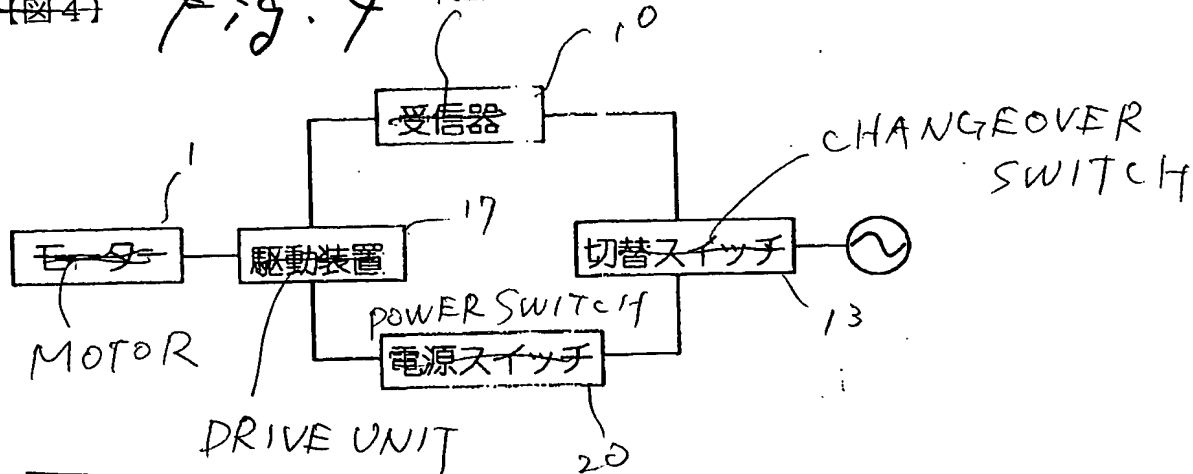 【図4】 Fig. 4
10
受信器
CHANGEOVER
SWITCH
1
17
モーター
駆動装置
切替スイッチ
13
POWER SWITCH
電源スイッチ
MOTOR
DRIVE UNIT
20